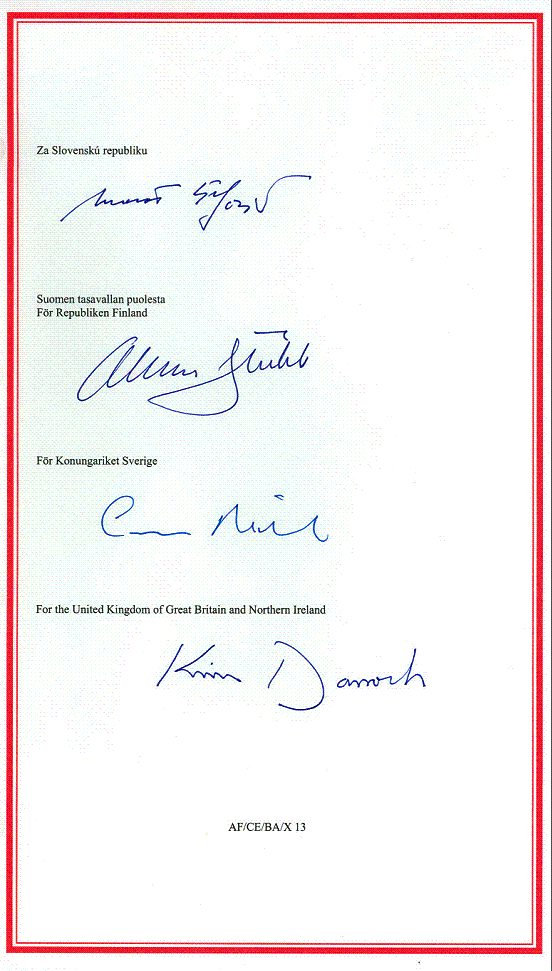 Za Slovenskú republiku
Suomen tasavallan puolesta
För Republiken Finland
För Konungariket Sverige
For the United Kingdom of Great Britain and Northern Ireland
Kim Darroch
AF/CE/BA/X 13